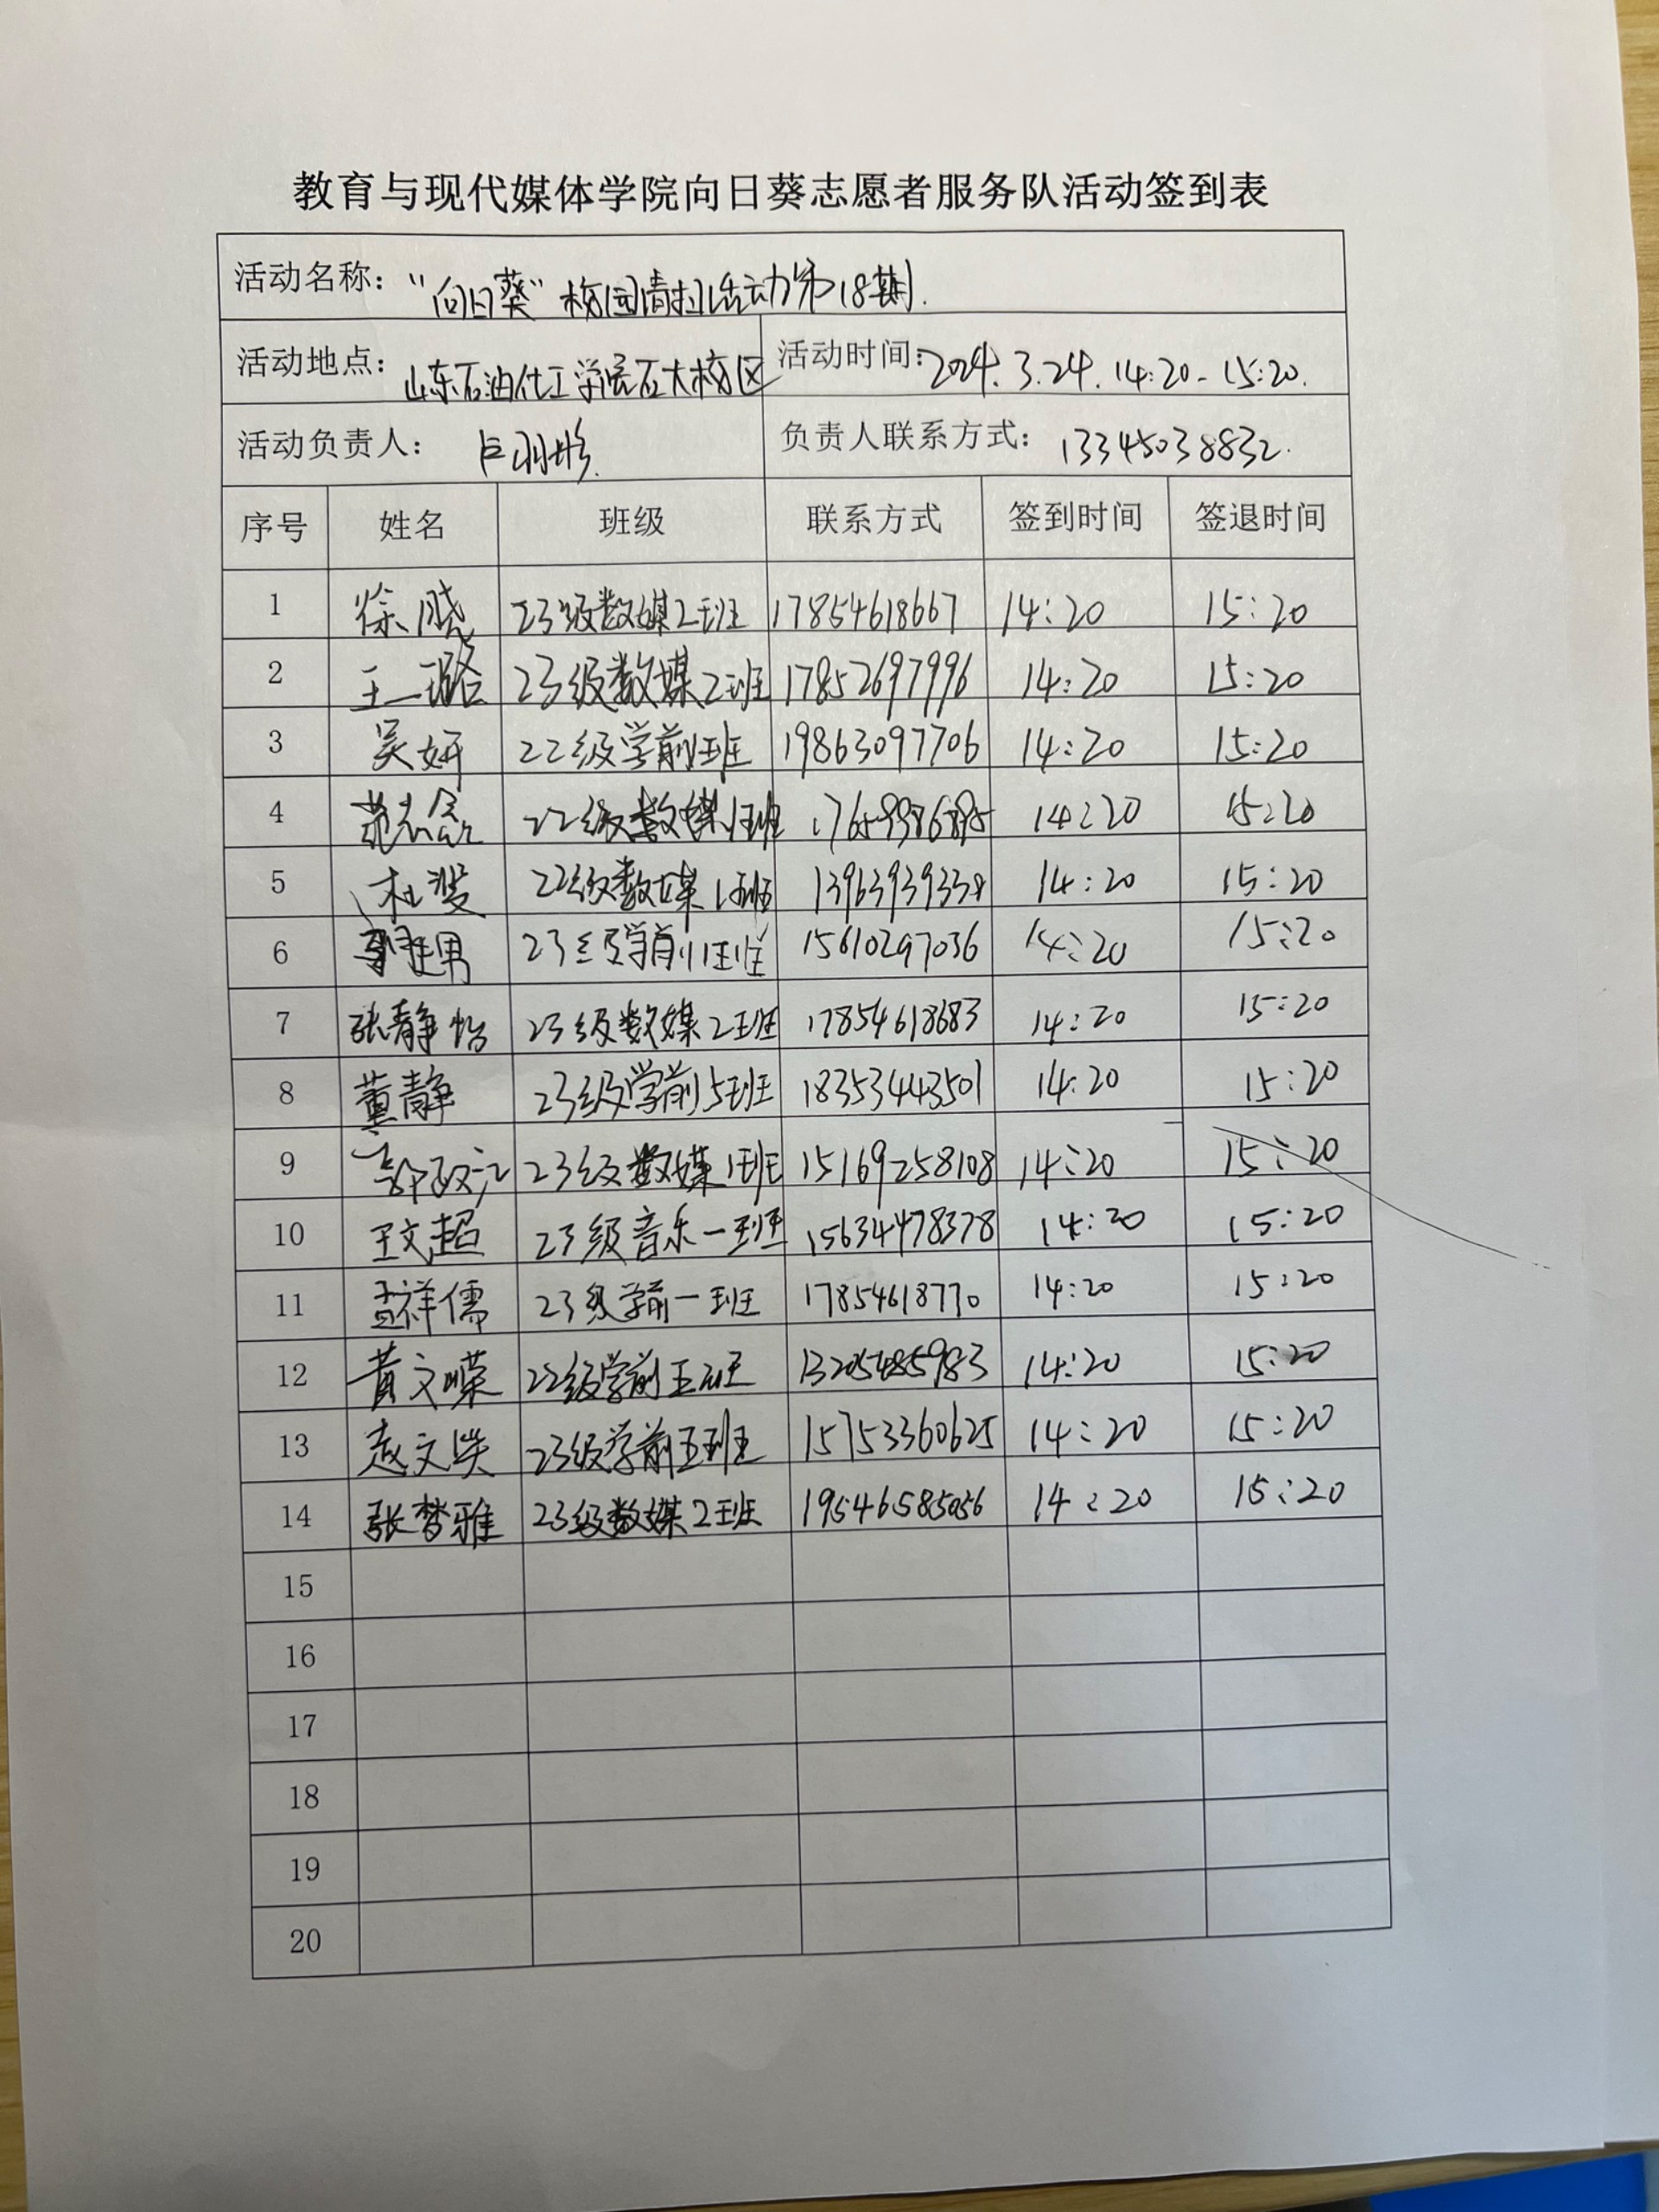 教育与现代媒体学院向日葵志愿者服务队活动签到表
活动名称：“向日葵”校园清扫活动第18期.
活动地点：山东石油化工学院石大校区 活动时间：2024.3.24.14:20-15:20.
活动负责人：卢羽彤. 负责人联系方式：13345038832.
序号 姓名 班级 联系方式 签到时间 签退时间
1 徐晓 23级数媒2班 17854618667 14:20 15:20
2 王一璐 23级数媒2班 17852697996 14:20 15:20
3 吴妍 22级学前1班 19863097706 14:20 15:20
4 22级数媒1班 14:20 15:20
5 22级数媒1班 14:20 15:20
6 23级学前1班 15610297036 14:20 15:20
7 张静怡 23级数媒2班 17854618683 14:20 15:20
8 董静 23级学前5班 18353443501 14:20 15:20
9 23级数媒1班 15169258108 14:20 15:20
10 王文超 23级音乐一班 15634478378 14:20 15:20
11 孟祥儒 23级学前一班 17854618770 14:20 15:20
12 黄文嵘 22级学前五班 13205485983 14:20 15:20
13 赵文 23级学前五班 15753360625 14:20 15:20
14 张梦雅 23级数媒2班 19546585056 14:20 15:20
15
16
17
18
19
20